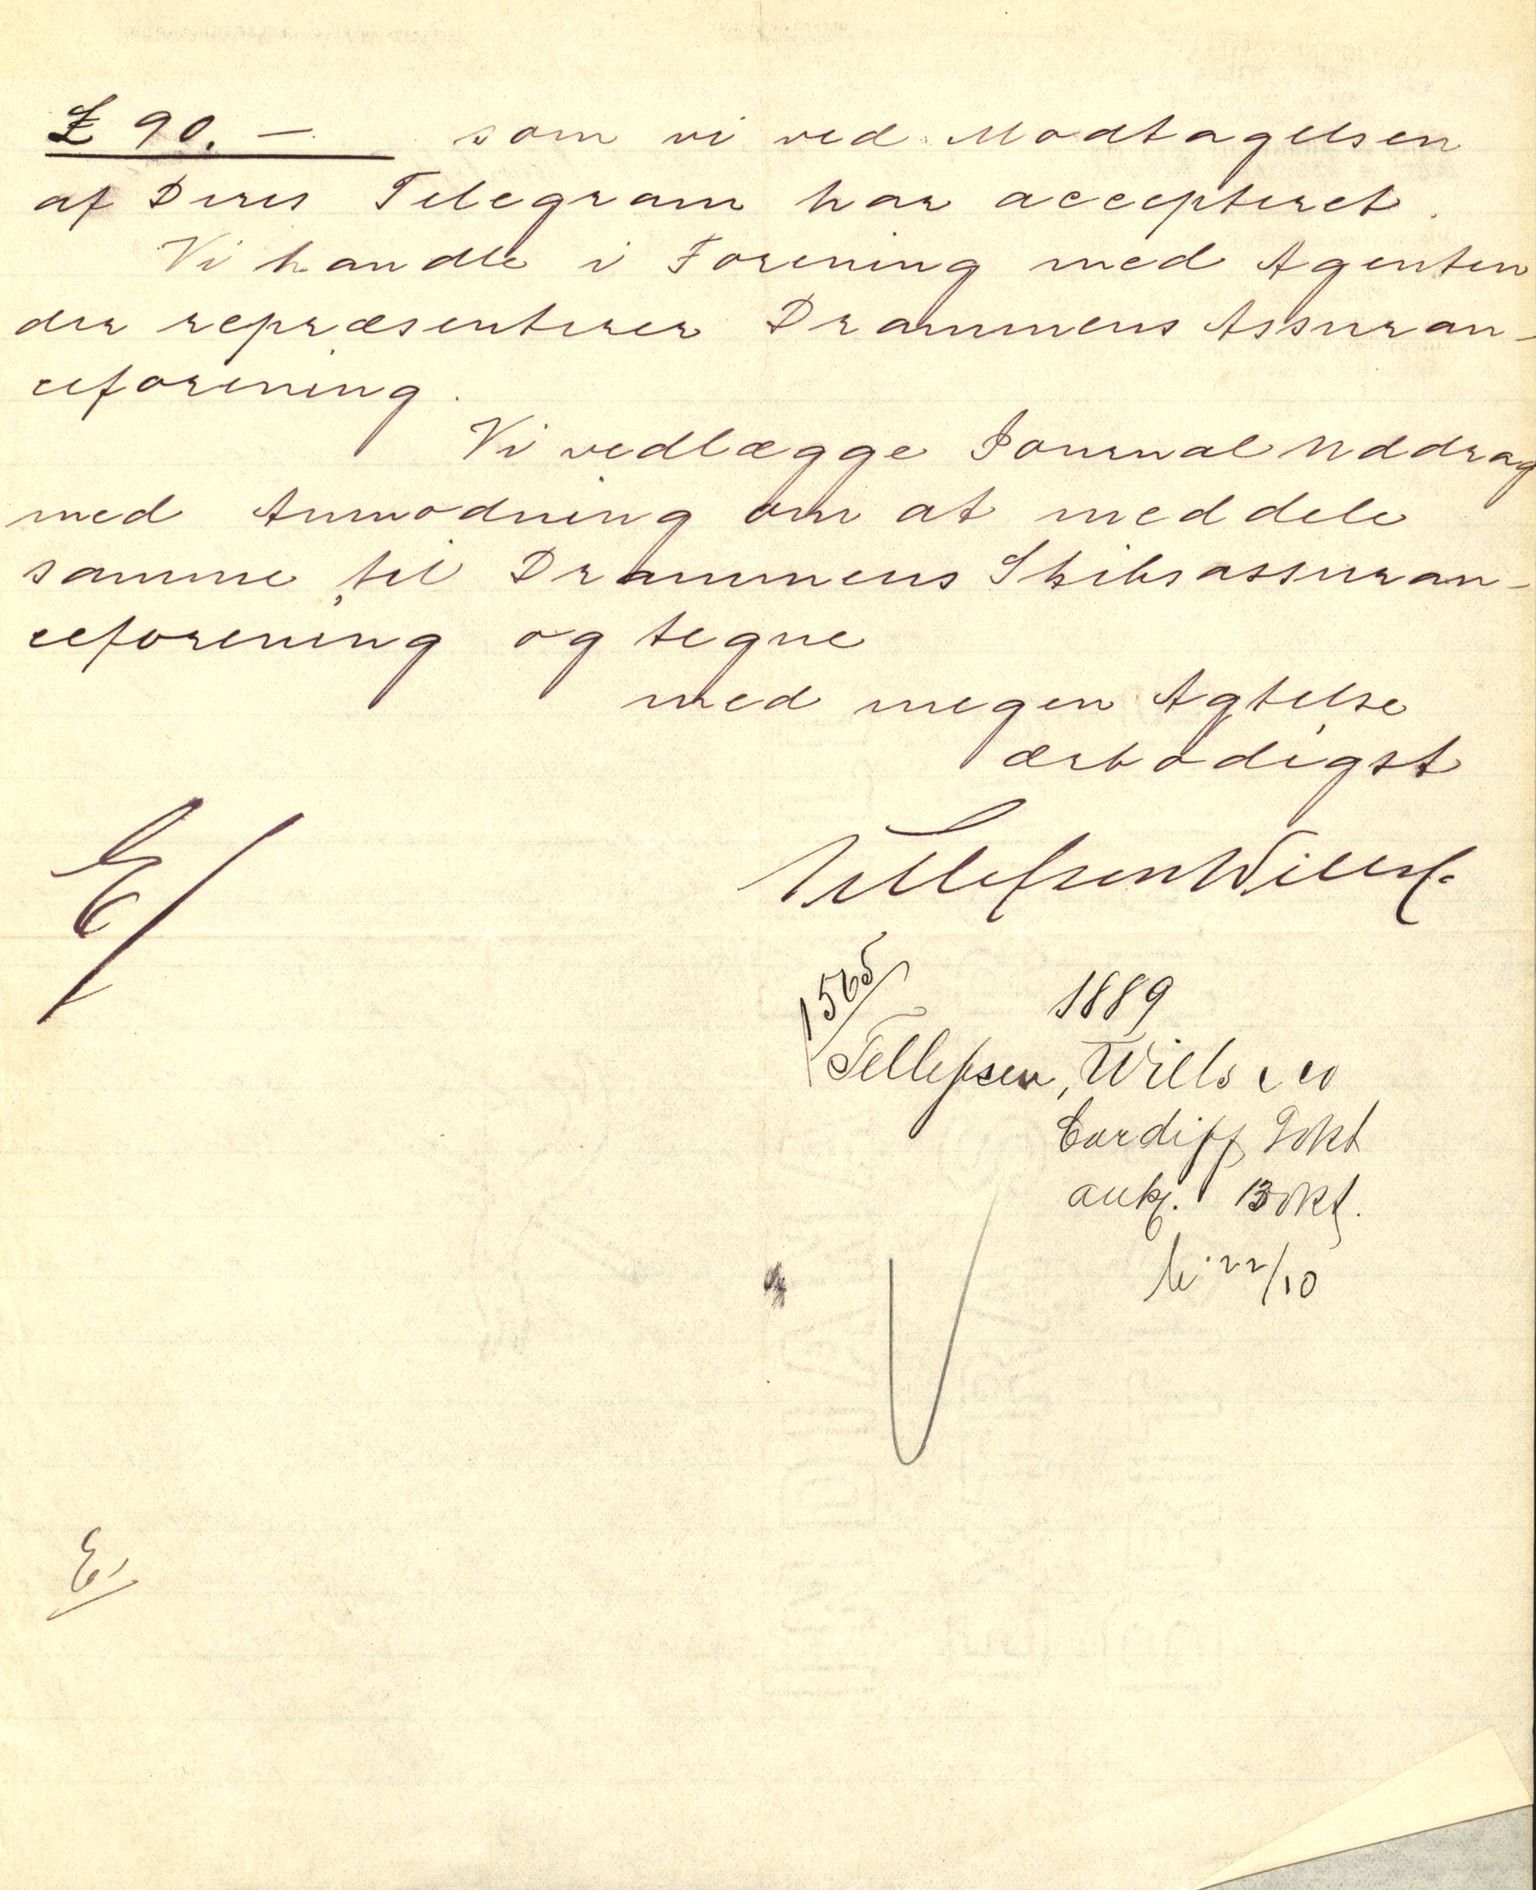 £ 90. — som vi ved Modtagelsen
af Deres Telegram har accepteret.
Vi handle i Forening med Agenten
der repræsenterer Drammens Assuran-
ceforening.
Vi vedlægge Journal Uddrag
med Anmodning om at meddele
samme til Drammens Skibsassuran-
ceforening og tegne
med megen Agtelse
ærbødigst
Tellefsen Wills &c.
E/
1565
1889
Tellefsen, Wills & Co
Cardiff 9 okt
ank. 13 okt.
22/10
E/